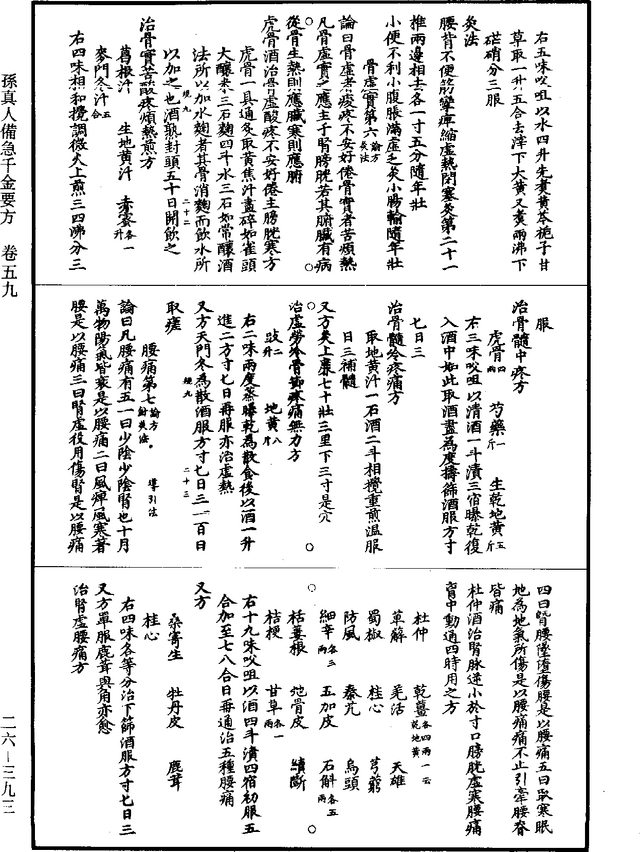 右五味㕮咀以水四升先煮黄芩梔子甘
草取一升五合去滓下大黄又煑兩沸下
芒硝分三服
灸法
腰背不便筋攣痺縮虛熱閉塞灸第二十一
椎兩邊相去各一寸五分隨年壯
小便不利小腹脹滿虛乏灸小腸輸隨年壯
骨虛實第六 論方灸法
論曰骨虛者痠疼不安好倦骨實者苦煩熱
凡骨虛實之應主于腎膀胱若其腑臟有病
從骨生熱則應臟寒則應腑
虎骨酒治骨虛酸疼不安好倦主膀胱寒方
虎骨一具通炙取黄焦汁盡碎如雀頭
大釀米三石麴四斗水三石如常釀酒
法所以加水麴者其骨消麴而飲水所
規九 二十二
以加之也酒熟封頭五十日開飲之
治骨實苦酸疼煩熱煎方
葛根汁 生地黄汁 赤蜜各一升
麥門冬汁五合
右四味相和攪調微火上煎三四沸分三
服
治骨髓中疼方
虎骨四兩 芍藥一斤 生乾地黄五斤
右三味㕮咀以清酒一斗漬三宿曝乾復
入酒中如此取酒盡為度擣篩酒服方寸
七日三
治骨髓冷疼痛方
取地黄汁一石酒二斗相攪重煎温服
日三補髓
又方灸上廉七十壯三里下三寸是穴
治虛勞冷骨節疼痛無力方
豉二升 地黄八斤
右二味兩度蒸曝乾為散食後以酒一升
進二方寸七日再服亦治虛熱
又方天門冬為散酒服方寸七日三一百日
規九 二十三
取瘥
腰痛第七 論方針灸法。 導引法
論曰凡腰痛有五一曰少陰少陰腎也十月
萬物陽氣皆衰是以腰痛二曰風痺風寒著
腰是以腰痛三曰腎虛役用傷腎是以腰痛
四曰䐴腰墜墮傷腰是以腰痛五曰取寒眠
地為地氣所傷是以腰痛痛不止引牽腰脊
皆痛
杜仲酒治腎脉逆小於寸口膀胱虛寒腰痛
胷中動通四時用之方
杜仲 乾薑各四兩一云乾地黄
萆薢 羌活 天雄
蜀椒 桂心 芎藭
防風 秦艽 烏頭
細辛各三兩 五加皮 石斛各五兩
栝蔞根 地骨皮 續斷
桔梗 甘草各一兩
右十九味㕮咀以酒四斗漬四宿初服五
合加至七八合日再通治五種腰痛
又方
桑寄生 牡丹皮 鹿茸
桂心
右四味各等分治下篩酒服方寸七日三
又方單服鹿茸與角亦愈
治腎虛腰痛方
孫真人備急千金要方 卷五九
二六—三九三